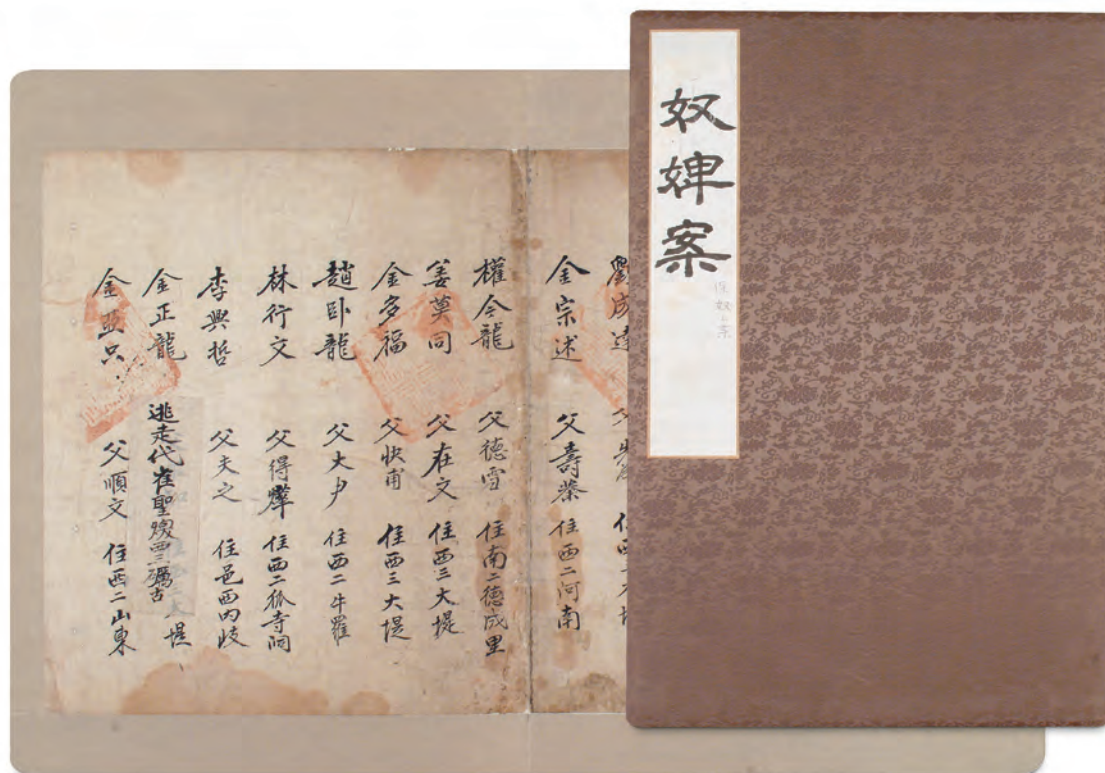 奴婢案
劉成達 父 住西
金宗述 父壽榮 住西二河南
權今龍 父德雪 住南二德成里
姜莫同 父在文 住西三大堤
金多福 父快甫 住西三大堤
趙臥龍 父大尹 住西二牛羅
林行文 父得燁 住西二狐寺洞
李興哲 父夫之 住邑西內岐
金正龍 逃走代崔聖 西三 古 堤
金 只 父順文 住西二山東